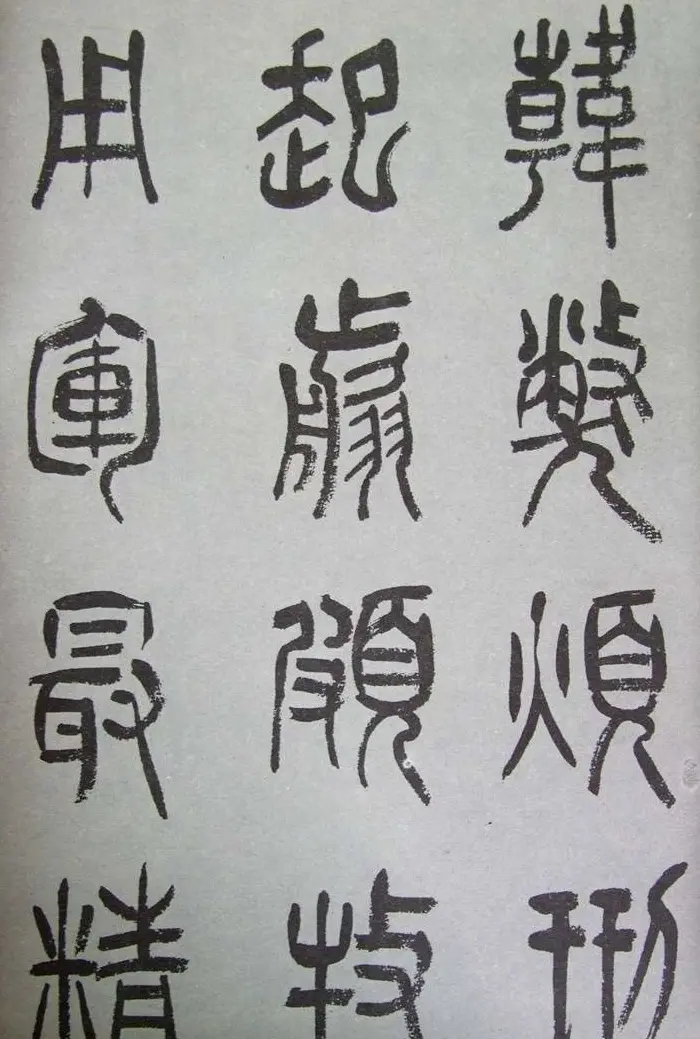 韓弊煩刑
起翦頗牧
用軍最精